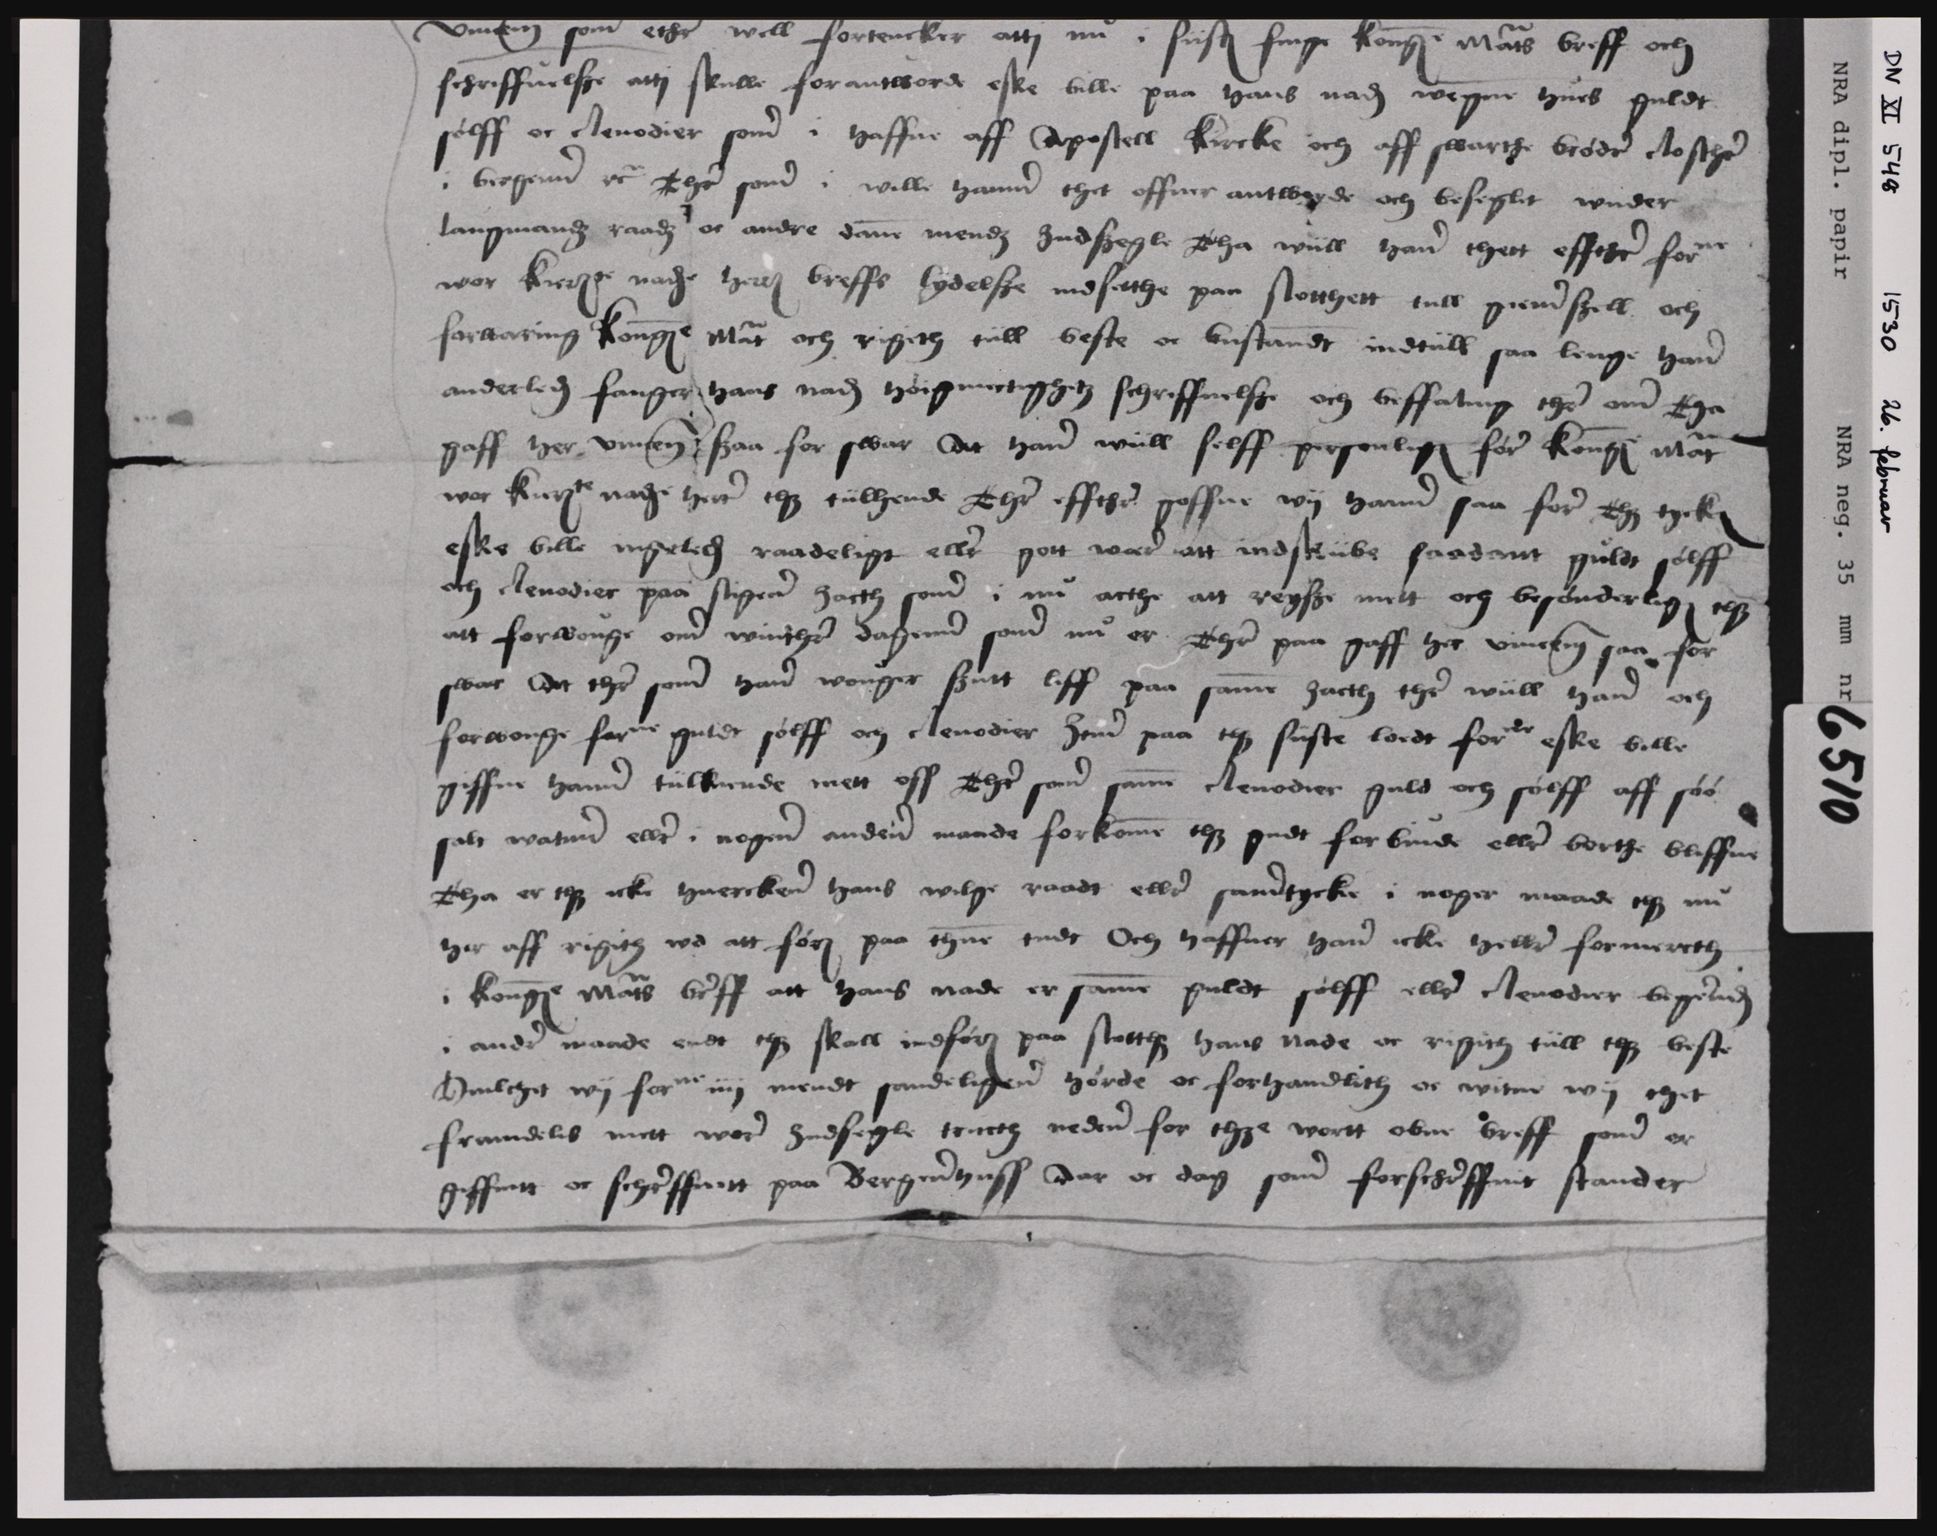 Vincentz som ether well fortencker attj nu i siist finge kong^e mats breff och
schriffuelsze attj skulle forantworde eske bille paa hans nadz wegne hues guldt
sølff oc clenodier som i haffue aff Apostell kircke och aff swarthe brødr closther
i bergenn etc Ther som i wille hannum thet offuer antworde och beseglet wnder
laugmandz raadz oc andre danne mendz Indszegle Tha wiill han thett effther for^ne
wor kierz^te nadze herrz breffs lydelsze indsetthe paa slotthett till giemszell och
forwaring kong^e mat och rigith till beste oc bustandt indtill saa lenge han
anderledz fanger hans nadz høigmectighetz schriffuelsze och beffaling ther om Tha
gaff her vincentz szaa for swar At han wiill selff personligh før kong^e mat
wor kierz^te nadze herr thz tiilhende Ther effther goffue wij hannum saa for Thz tycks
eske bille ingeledz raadeligt eller gott wær att indskiibe saadant guldt sølff
och clenodier paa stigen Iacth som i nu acthe att reysze mett och besønderligh thz
att forwouge om winther dagenn som nu er Ther paa gaff her vincentz saa for
swar At ther som han wouger szitt liff paa samme Iacth ther wiill han och
forwouge for^ne guldt sølff och clenodier Item paa thz siiste loedt for^ne eske bille
giffue hannum tiilkiende mett oss Ther som samme clenodier guld och sølff aff søø
salt watnn eller i nogen anden maade forkomme thz gudt forbiude eller borthe bliffue
Tha er thz icke huercken hans wilge raadt eller samtycke i noger maade thz nu
her aff rigith wd att førz paa thenne tiidt Och haffuer han icke heller formercth
i kong^e mats breff att hans nade er samme guldt sølff eller clenodier begerindz
i andr maade endt thz skall indførz paa slotthz hans nade oc rigith till thz beste
Huilchet wij for^ne iiij mendt sandeligen hørde oc forhandlith oc witne wij thet
framdelis mett wore Indsegle trycth neden for thze wortt obne breff som er
giffuitt oc schreffuitt paa Bergenhuss Aar oc dag som forschreffuit stander
DN XI 548 1530 26. februar
NRA dipl. papir NRA neg. 35 mm nr
6510